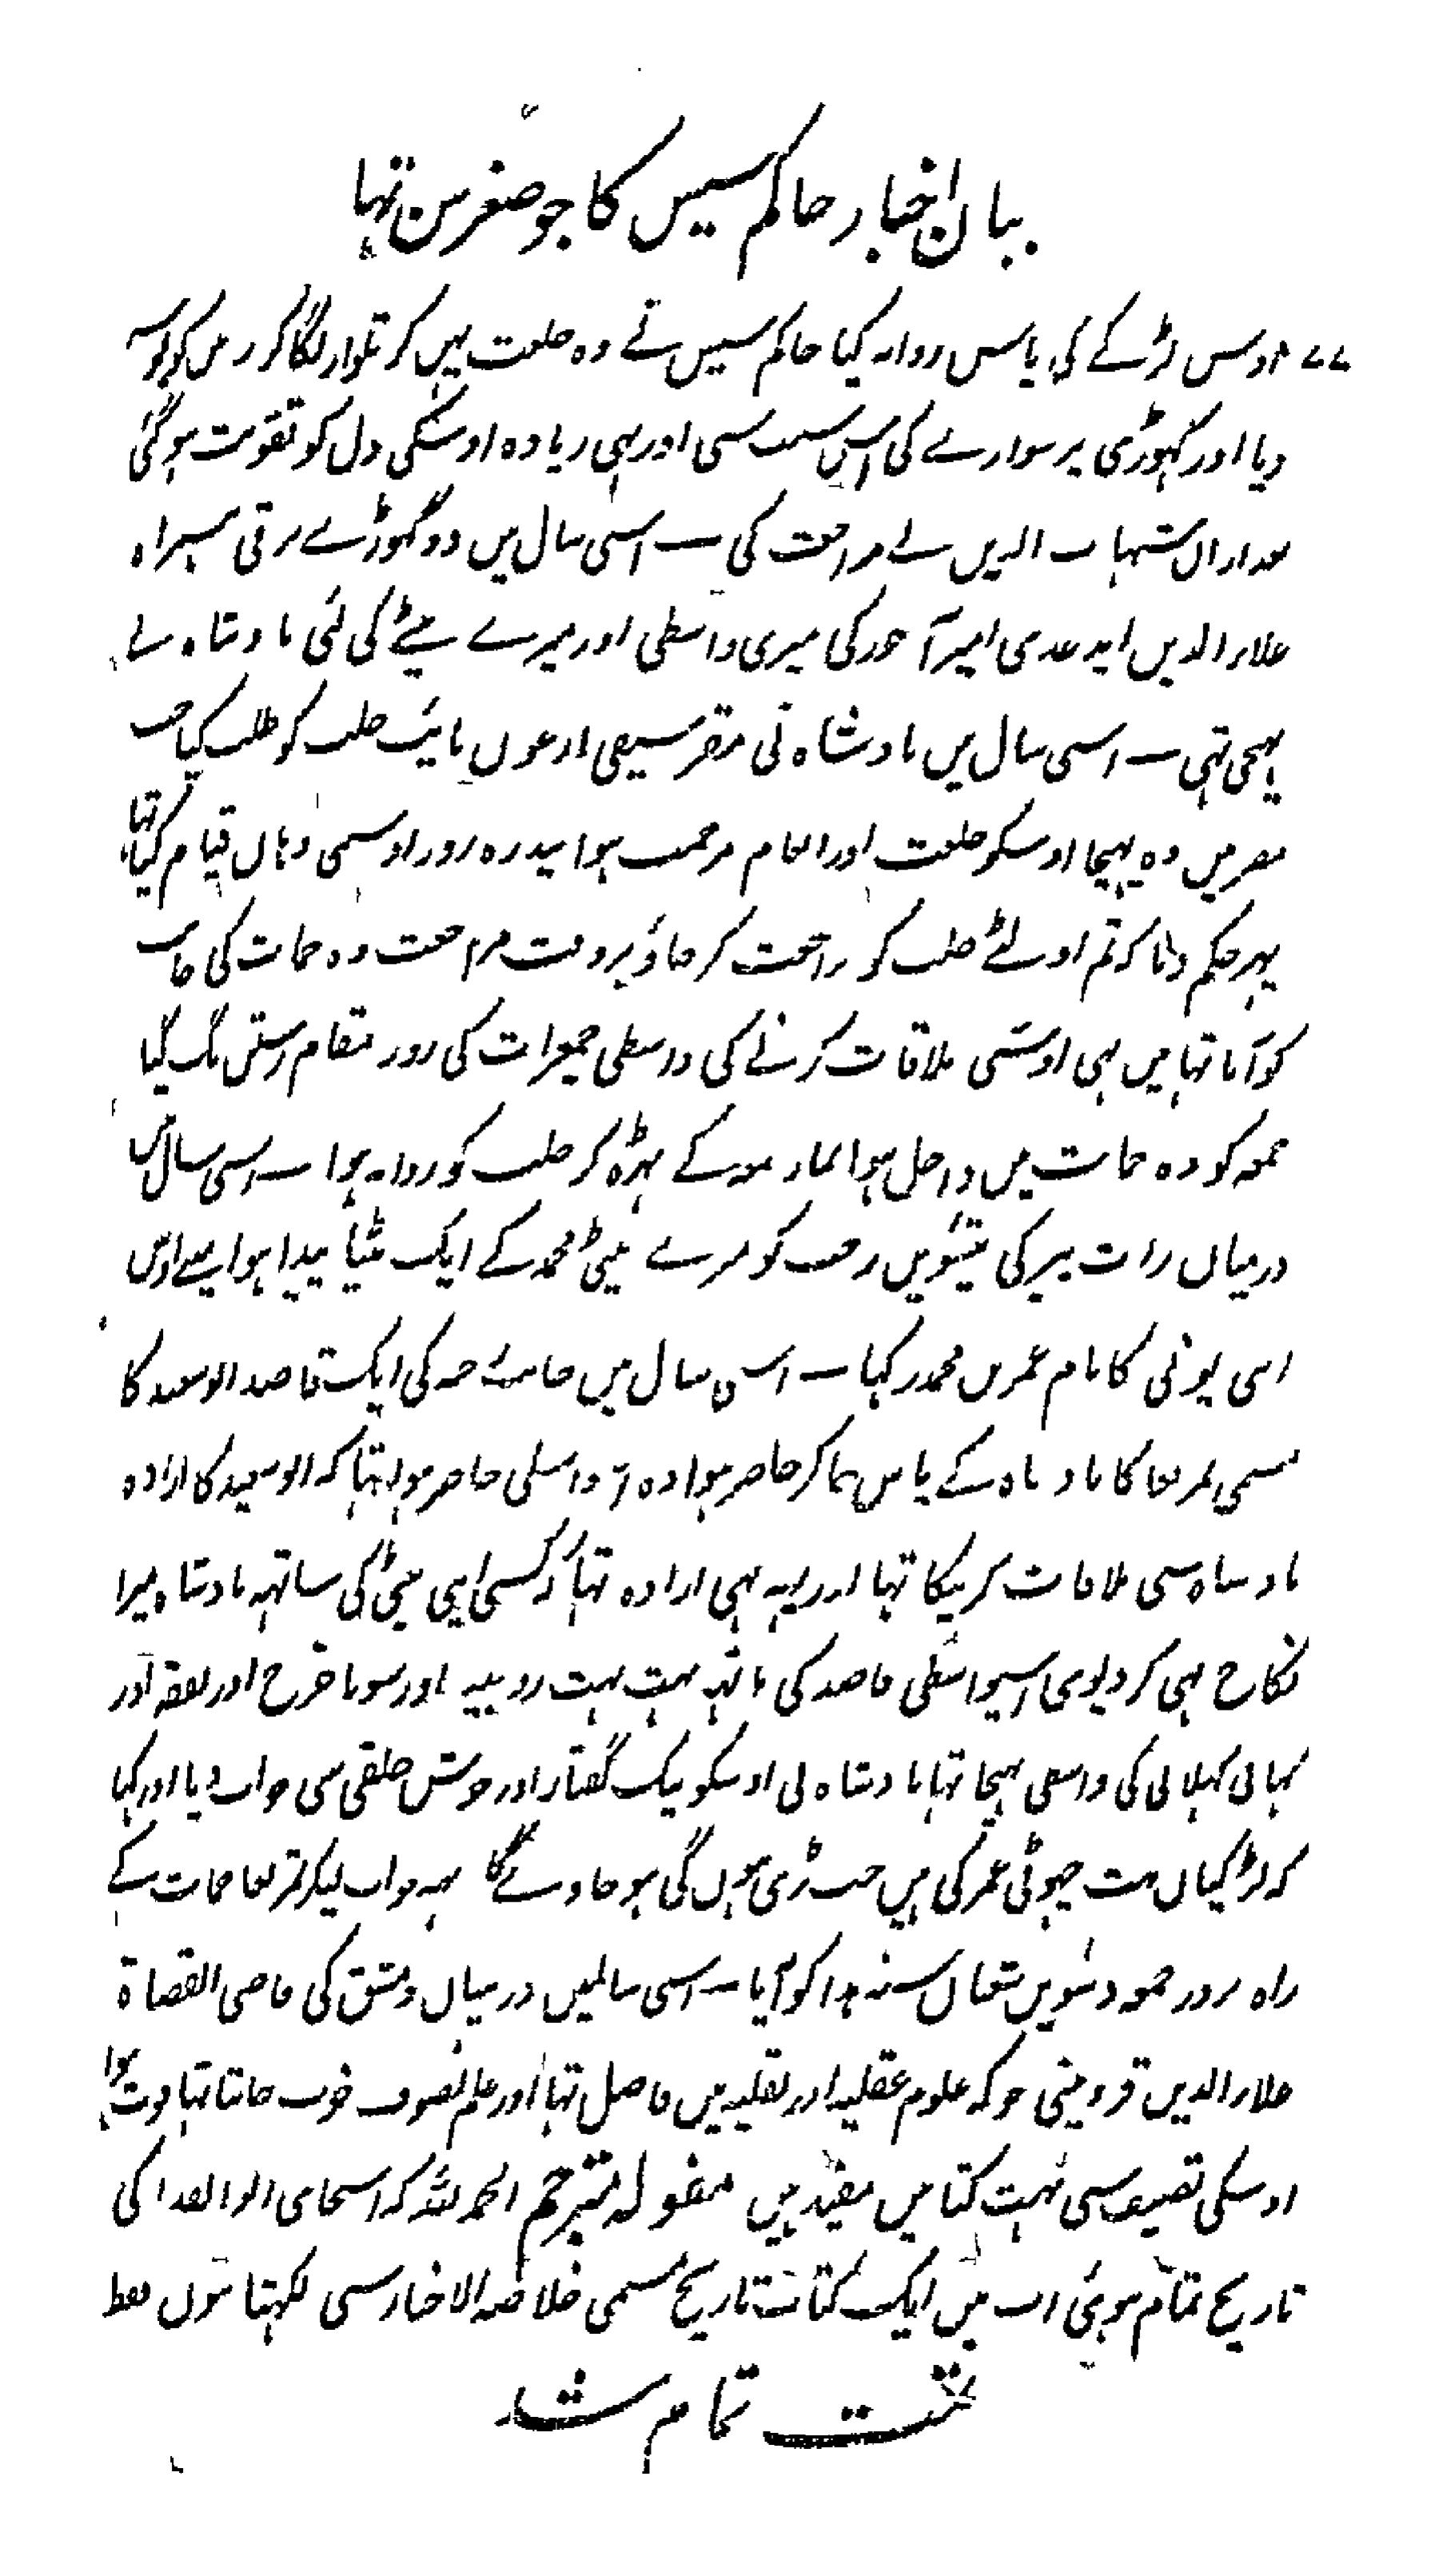 بیان اخبار حاکم سیس کا جو صغر سن تہا
اوس لڑکے کی پاس روانہ کیا حاکم سیس نے وہ خلعت پہن کر تلوار لگا کر زمین کو بوسہ
دیا اور گہوڑی پر سوار ہے کی اس سبب سی اور بہی زیادہ اوسکی دل کو تقویت ہوگئی
بعد ازاں شہاب الدین نے مراجعت کی ــ اسی سال میں دو گہوڑے برقی ہمراہ
علاء الدین ایدغدی امیر آخور کی میری واسطی اور میرے بیٹے کی لئی بادشاہ نے
بہیجی تہی ــ اسی سال میں بادشاہ نی مقر سیفی ارغون نائب حلب کو طلب کیا جب
مصر میں وہ پہنچا اوسکو خلعت اور انعام مرحمت ہوا پندرہ روز اوسنی وہاں قیام کیا تہا
پہر حکم دیا کہ تم اولٹے حلب کو مراجعت کر جاؤ بروقت مراجعت وہ حمات کی جانب
کو آیا تہا میں بہی اوسسی ملاقات کرنے کی واسطی جمعرات کی روز مقام رستن تک گیا
جمعہ کو وہ حمات میں داخل ہوا نماز جمعہ کے پڑہ کر حلب کو روانہ ہوا ــ اسی سال میں
درمیان رات پیر کی تیئویں رجب کو میرے بیٹی محمد کے ایک بیٹا پیدا ہوا میںے اوس
اپنی پوتی کا نام عمر بن محمد رکہا ــ اسی سال میں جانب سے کی ایک قاصد ابو سعید کا
مسمی تمر بغا کا بادشاہ کے پاس آکر حاضر ہوا وہ اس واسطی حاضر ہوا تہا کہ ابو سعید کا ارادہ
بادشاہ سی ملاقات کرنیکا تہا اور یہہ بہی ارادہ تہا کہ کسی اپنی بیٹی کی ساتہہ بادشاہ میرا
نکاح بہی کر دیوی اسیواسطی قاصد کی ہاتہہ بہت بہت روپیہ اور سونا خرچ اور نفقہ اور
کہانی کہلانی کی واسطی بہیجا تہا بادشاہ نی اوسکو نیک گفتار اور خوش خلقی سی جواب دیا اور کہا
کہ لڑکیاں بہت چہوٹی عمر کی ہیں جب بڑی ہوں گی ہو جاوے گا یہہ جواب لیکر تمر بغا حمات کے
راہ بروز جمعہ دسویں شعبان سنہ ہذا کو آیا ــ اسی سالمیں درمیان دمشق کی قاضی القضاۃ
علاء الدین قزوینی جو کہ علوم عقلیہ اور نقلیہ میں فاضل تہا اور علم تصوف خوب جانتا تہا فوت ہوا
اوسکی تصنیف سی بہت کتابیں مفید ہیں مقولہ مترجم الحمد للہ کہ اسجای ابو الفدا کی
تاریخ تمام ہوئی اب میں ایک کتاب تاریخ مسمی خلاصۃ الاخبار سی لکہتا ہوں فقط
تمت تمام شد